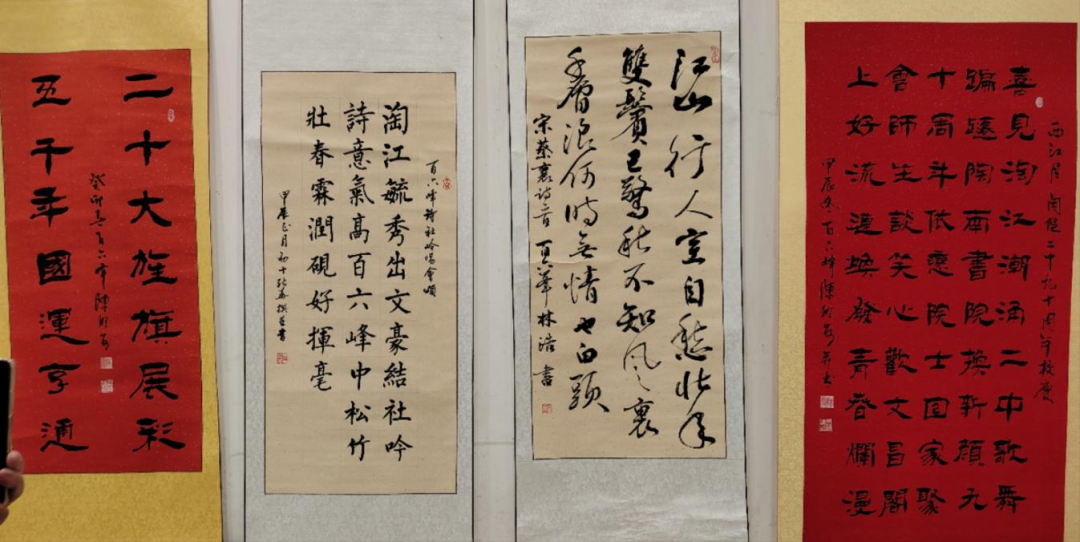 二十大旌旗展彩
癸卯春百六峰陳
五千年國運亨通
百六峰詩社吟唱會頌
淘江毓秀出文豪結社吟
詩意氣高百六峰中松竹
壯春霖潤硯好揮毫
甲辰正月初十 撰並書
江山行人空自愁壯年
雙鬢已驚秋不知風裏
千層浪何時無情也白頭
宋蔡襄詩一首 林浩書
西江月 二十九十周年校慶
喜見淘江潮涌二中歌舞
蹁躚陶南書院換新顏九
十周年依戀院士回家聚
會師生談笑心歡文昌閣
上好流連煥發青春爛漫
甲辰冬百六峰陳